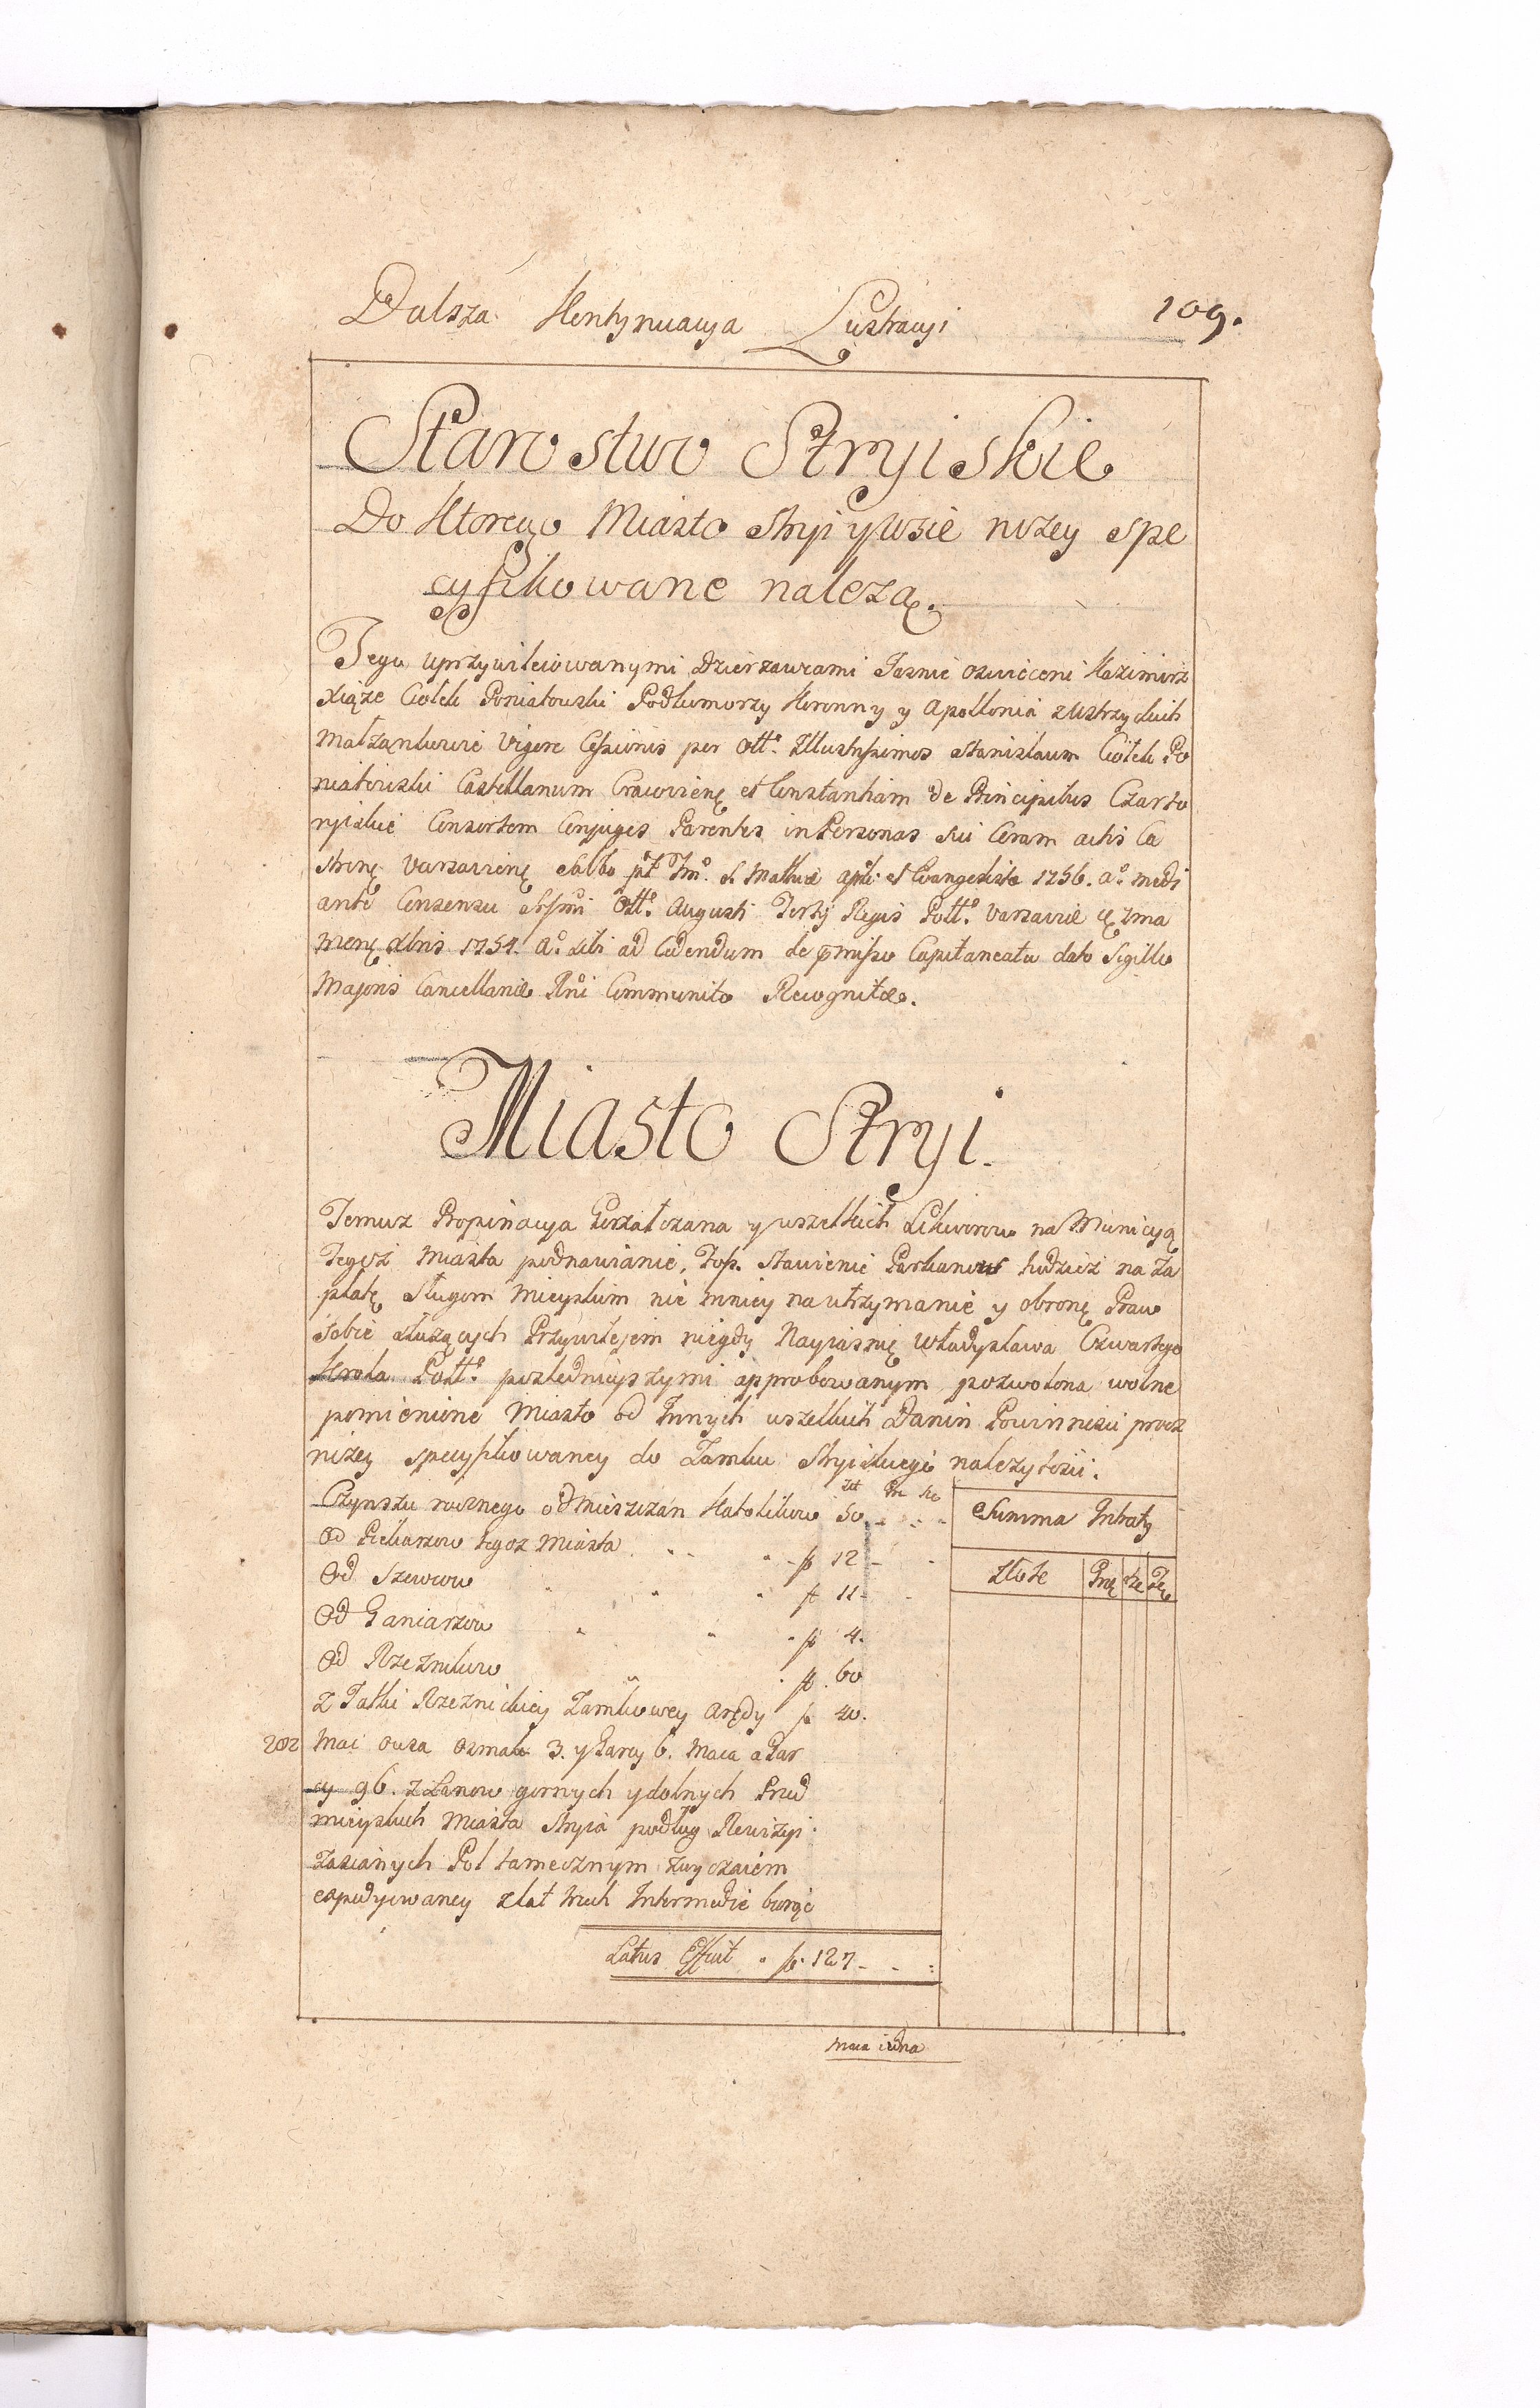 Dalsza Kontynuacya Lustracyi 109.
Starostwo Stryiskie
Do Ktorego Miasto Stryi y Wsie niżey spe
cyfikowane należą.
Tego uprzywileiowanymi Dzierzawcami Jasnie oswieceni Kazimirz
Xiąże Ciołek Poniatowski Podkomorzy Koronny y Apollonia z Ustrzyckich
Małżonkowie Vigore Cessionis per Olł. Illustrissimos Stanislaum Ciołek Po
niatowski Castellanum Cracoviensę et Constantiam de Principibus Czarto
ryiskie Consortem Conjuges Parentes in Personas sui Coram actis Ca
strensę Varsaviensę Sabbo pt Fm. S. Mathai apli et Evangelista 1756. Ao medi
ante Consensu Sssmi Olł. Augusti Tertij Regis Poll. Varsavie
Mensę 1754. Ao sibi ad Cedendum de pmisso Capitaneatu dato Sigillo
Majoris Cancellariæ Rni Communito Recognitæ.
Miasto Stryi.
Temuz Propinacya Gorzałczana y wszelkich Likworow na Municyą
Tegoż Miasta podnawianie, Stawienie Parkanow tudzież na Za
płatę Sługom Mieyskim nie mniey na utrzymanie y obronę Praw
Sobie służących Przywilejem niegdy Nayiasnię Władysława Czwartego
Krola Poll. poslednieyszymi approbowanym pozwolona wolne
pomienione Miasto od Innych wszelkich Danin Powinnosci procz
niżey specyfikowaney do Zamku Stryiskiego należytości.
Czynszu rocznego od Mieszczan Katolikow 50
Złł Gr Sze
Summa Intraty
Od Piekarzow tegoz Miasta f 12
Złote Grę Sze
Od Szewcow f 11
Od Garncarzow f 4.
Od Rzeznikow f. 60
Z Jatki Rzeznickiey Zamkowey Arędy f 40.
202 Mac Owsa Osmak 3. y Garcy 6. Maca a Gar
cy 96. z Łanow gornych y dolnych Przed
mieyskich Miasta Stryia podług Rewizyi
Zasianych Pol tamecznym zwyczaiem
expedyiowaney z lat trzech Intermedie biorąc
Latus Efficit f. 127
maca iedna